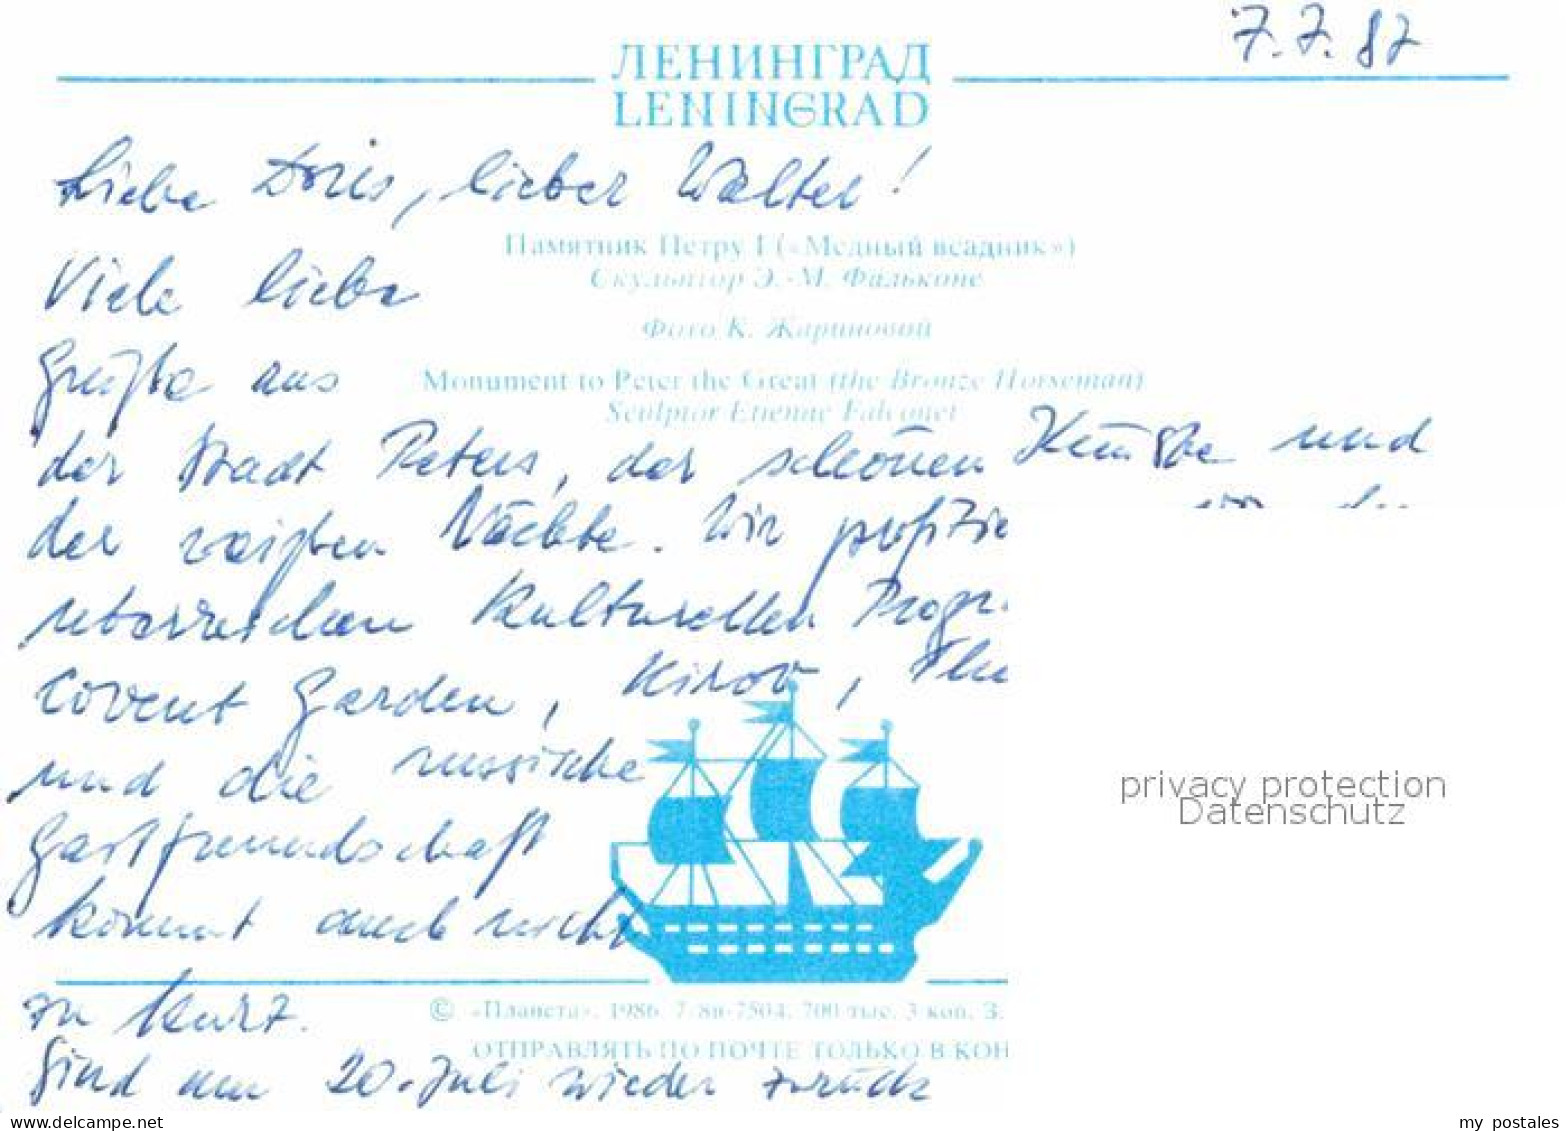 7.7.87
ЛЕНИНГРАД
LENINGRAD
Liebe Doris, lieber Walter!
Памятник Петру I («Медный всадник»)
Скульптор Э.-М. Фальконе
Viele liebe
Фото К. Жариновой
Grüße aus
Monument to Peter the Great (the Bronze Horseman)
Sculptor Etienne Falconet
der Stadt Peters, der schönen Künste und
der weißen Nächte. Wir profitie
kulturellen Progr
Covent Garden, Kirov,
und die russische
Gastfreundschaft
kommt auch nicht
zu kurz.
© «Планета», 1986. 7/8н-7504. 700 тыс. 3 коп. З.
ОТПРАВЛЯТЬ ПО ПОЧТЕ ТОЛЬКО В КОН
Sind am 20. Juli wieder zurück
privacy protection
Datenschutz
www.delcampe.net
my_postales